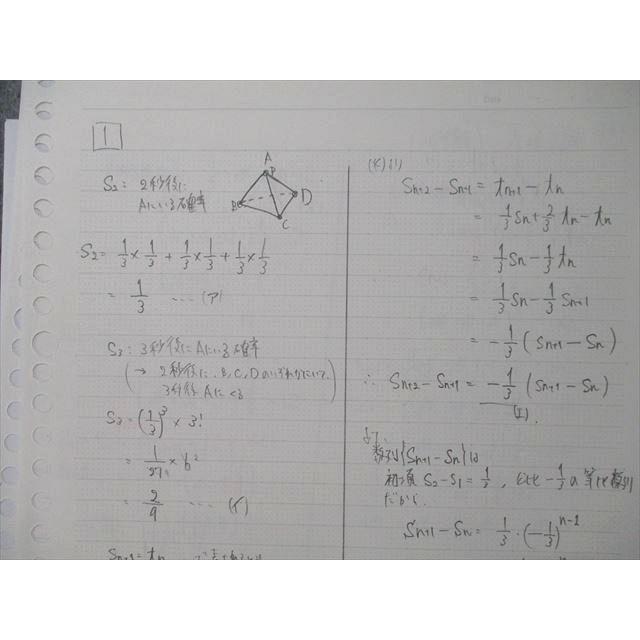 1
A
P
B
C
D
S₂: 2秒後に
Aにいる確率
S₂ = 1/3 × 1/3 + 1/3 × 1/3 + 1/3 × 1/3
= 1/3 ……(ア)
S₃: 3秒後にAにいる確率
(→ 2秒後に、B, C, Dのいずれかにいて、
3秒後 Aにくる)
S₃ = (1/3)³ × 3!
= 1/27 × 6²
= 2/9 …… (イ)
Sn+1 = tn
より
Sn+2 − Sn+1 = tn+1 − tn
= 1/3 Sn + 2/3 tn − tn
= 1/3 Sn − 1/3 tn
= 1/3 Sn − 1/3 Sn+1
= −1/3 (Sn+1 − Sn)
∴ Sn+2 − Sn+1 = −1/3 (Sn+1 − Sn)
(エ)
よって、
数列{Sn+1 − Sn}は
初項 S₂ − S₁ = 1/3, 公比 −1/3 の等比数列
だから、
Sn+1 − Sn = 1/3・(−1/3)ⁿ⁻¹